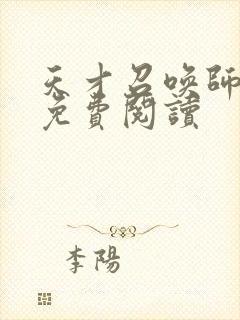 天才召喚師
免費閱讀
李陽